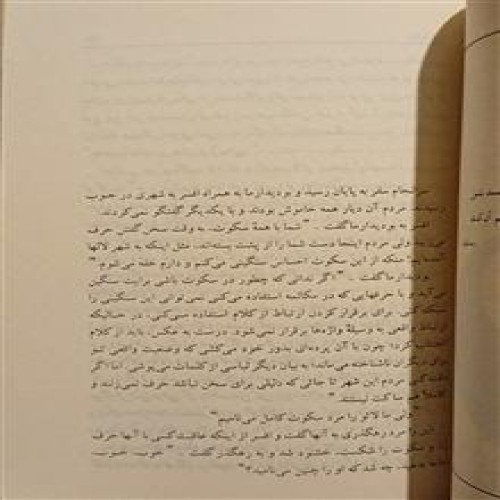 سرانجام سفر به پایان رسید و بودیدارما به همراه افسر به شهری در جنوب
رسیدند. مردم آن دیار همه خاموش بودند و با یکدیگر گفتگو نمی‌کردند.
افسر به بودیدارما گفت - "شما با همهٔ سکوت، به وقت سخن گفتن حرف
می‌زنید ولی مردم اینجا دست شما را از پشت بسته‌اند، مثل اینکه به شهر لالها
آمده‌ایم؛ منکه از این سکوت احساس سنگینی می‌کنم و دارم خفه می‌شوم."
بودیدارما گفت - "اگر ندانی که چطور در سکوت باشی برایت سنگین
می‌آید و با حرفهایی که در مکالمه استفاده می‌کنی نمی‌توانی این سنگینی را
سبک کنی. برای برقرار کردن ارتباط از کلام استفاده می‌کنی، در حالیکه
ارتباط واقعی به وسیلهٔ واژه‌ها برقرار نمی‌شود. درست به عکس، باید از کلام
اجتناب کرد؛ چون با آن پرده‌ای بدور خود می‌کشی که وضعیت واقعی تو
برای دیگران ناشناخته می‌ماند؛ به بیان دیگر لباسی از کلمات می‌پوشی. اما اگر
دقت کنی مردم این شهر تا جائی که دلیلی برای سخن نباشد حرف نمی‌زنند و
کاملاً هم ساکت نیستند."
"ولی ما لائو را مرد سکوت کامل می‌نامیم"
این را مرد رهگذری به آنها گفت و افسر از اینکه عاقبت کسی با آنها حرف
زد و سکوت را شکست، خشنود شد و به رهگذر گفت - "خوب، خوب،
چه شد که او را چنین می‌نامید؟"